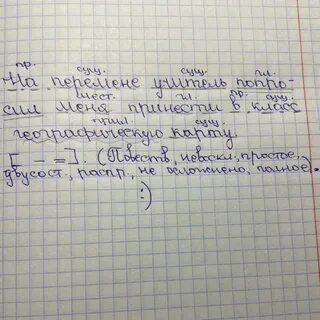 пр. сущ. сущ. гл.
На перемене учитель попро-
мест. гл. пр. сущ.
сил меня принести в класс
прил. сущ.
географическую карту.
[ - = ]. (Повеств., невоскл., простое,
двусост., распр., не осложнено, полное).
:)